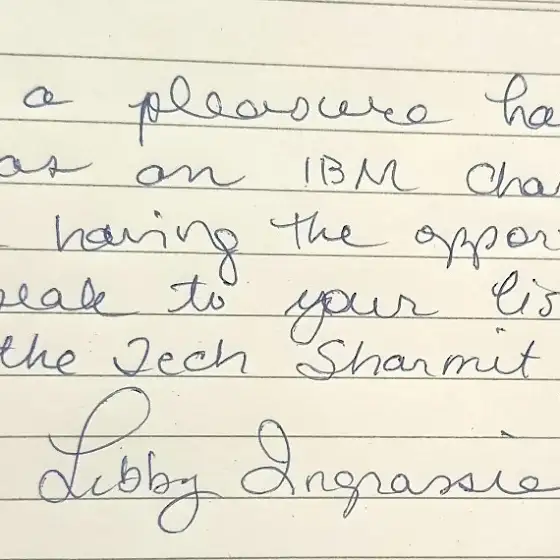 a pleasure ha
as an IBM Cha
having the oppor
eak to your lis
the Tech Sharmit
Libby Ingrassia